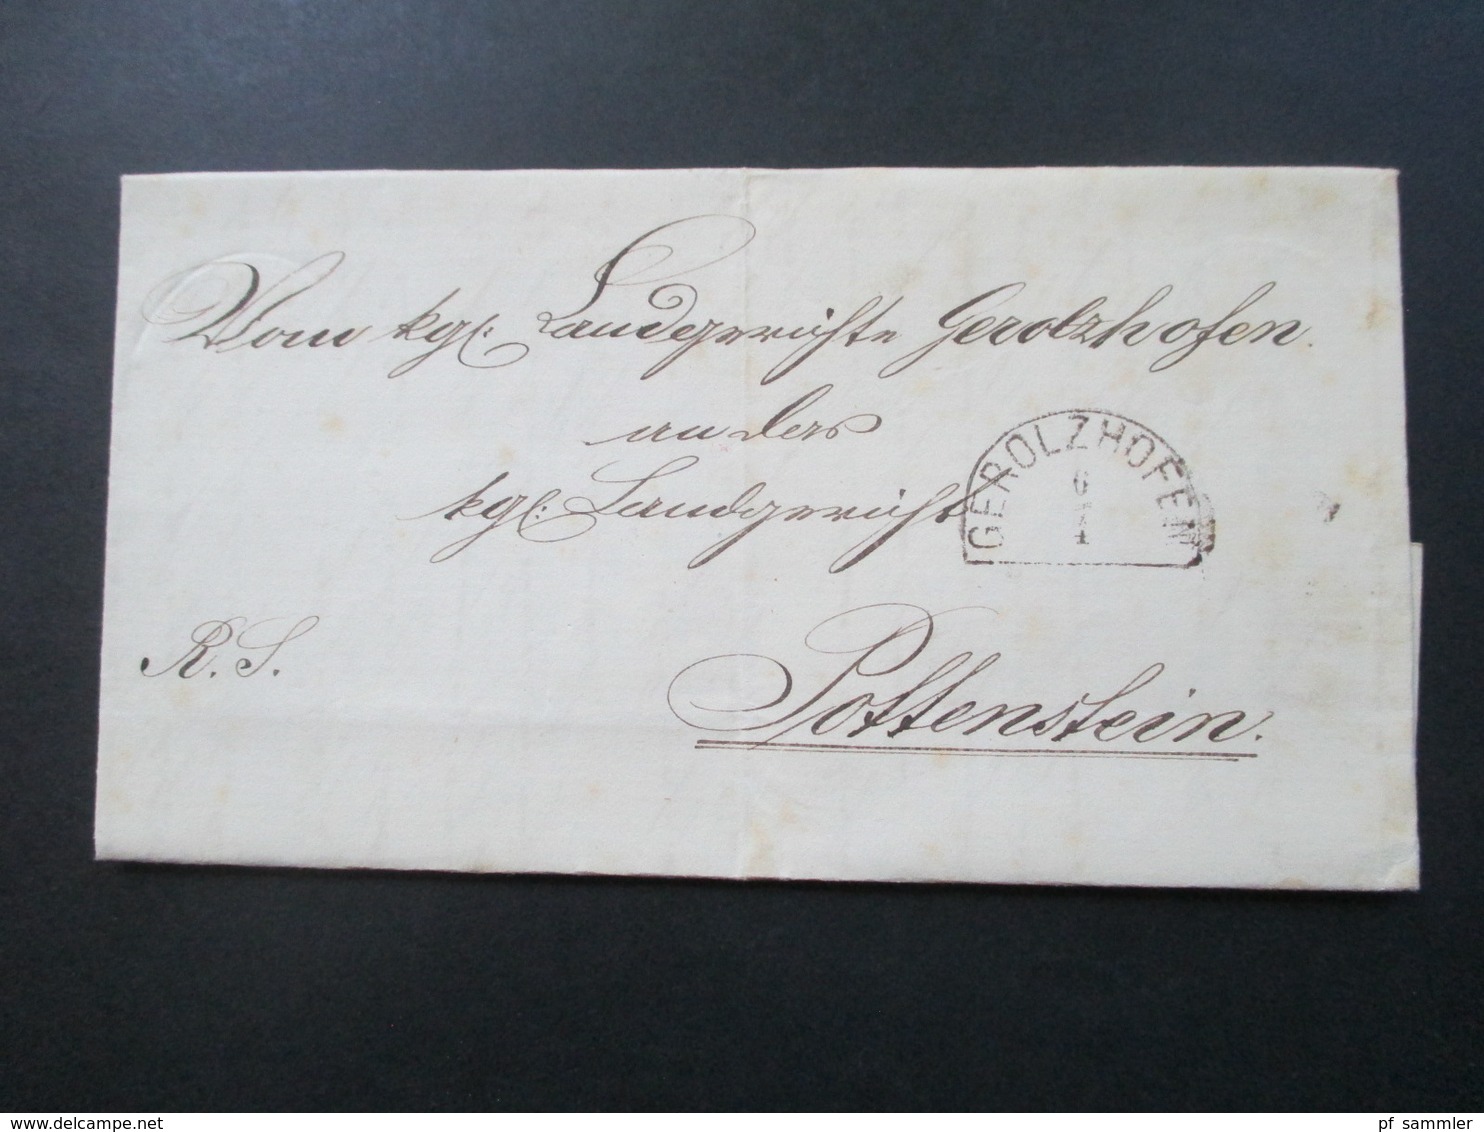 Vom kgl. Landgerichte Gerolzhofen.
an das
kgl. Landgericht
GEROLZHOFEN
6
4
R. S.
Pottenstein.
www.delcampe.net
pf_sammler